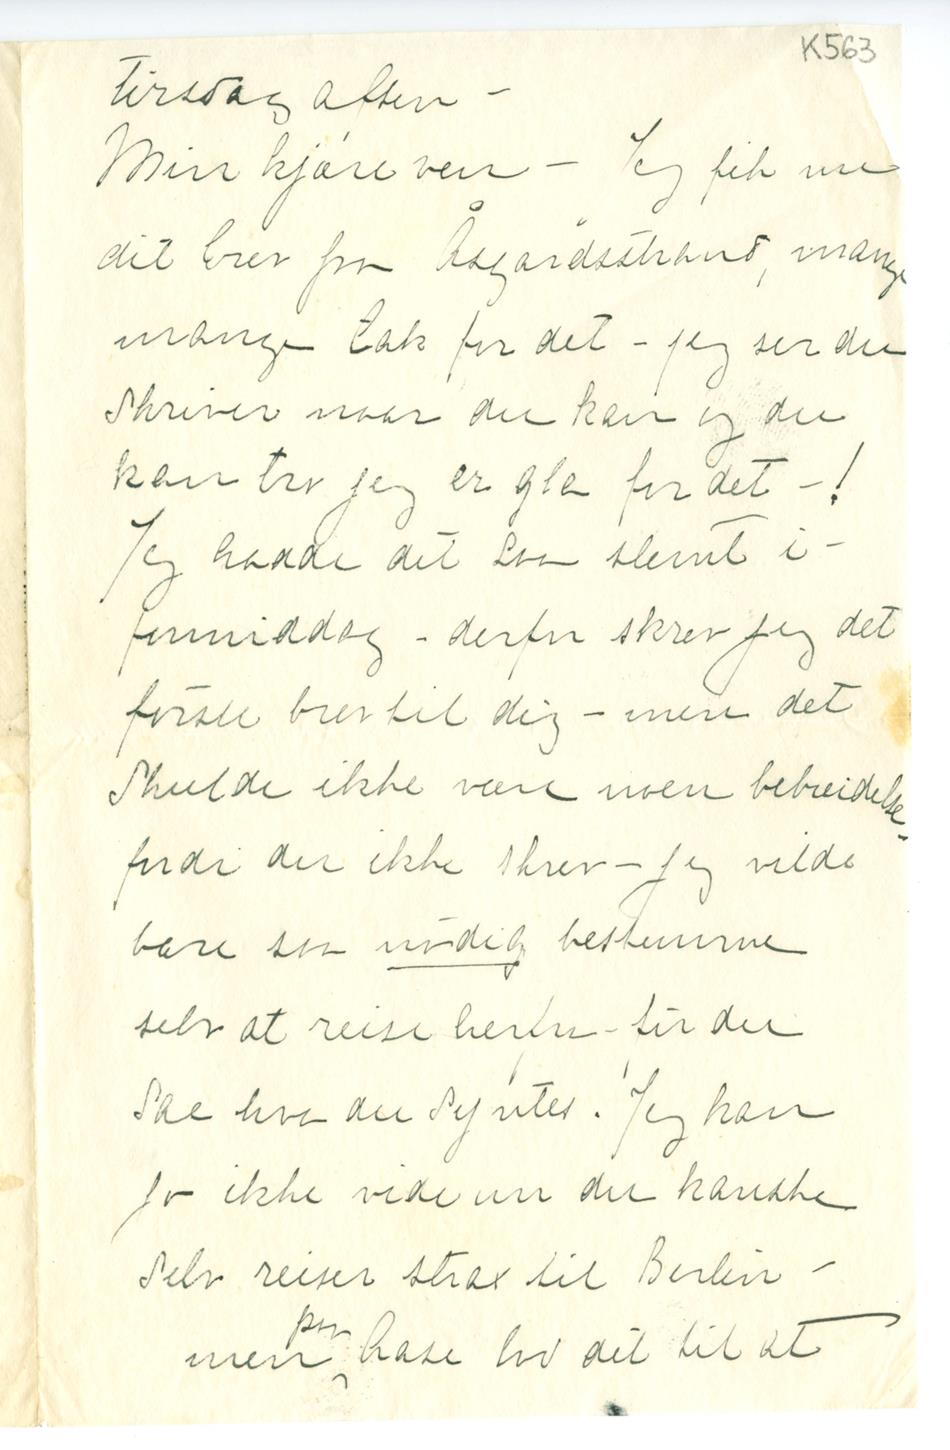 K563
Tirsdag aften –
Min kjære ven – Jeg fik nu
dit brev fra Åsgårdsstrand, mange
mange tak for det – jeg ser du
skriver naar du kan og du
kan tro jeg er gla for det – !
Jeg hadde det saa slemt i –
formiddag – derfor skrev jeg det
første brev til dig – men det
skulde ikke være noen bebreidelse –
fordi du ikke skrev – Jeg vilde
bare saa nødig bestemme
selv at reise herfra – før du
sae hva du syntes. Jeg kan
jo ikke vide om du kanske
selv reiser strax til Berlin –
men paa Hase lod det til at